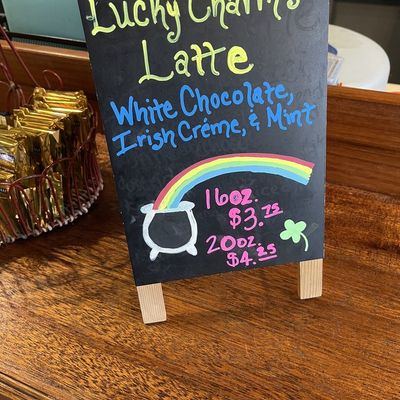 Lucky Charm's
Latte
White Chocolate,
Irish Créme, & Mint
16oz.
$3.75
20oz.
$4.25